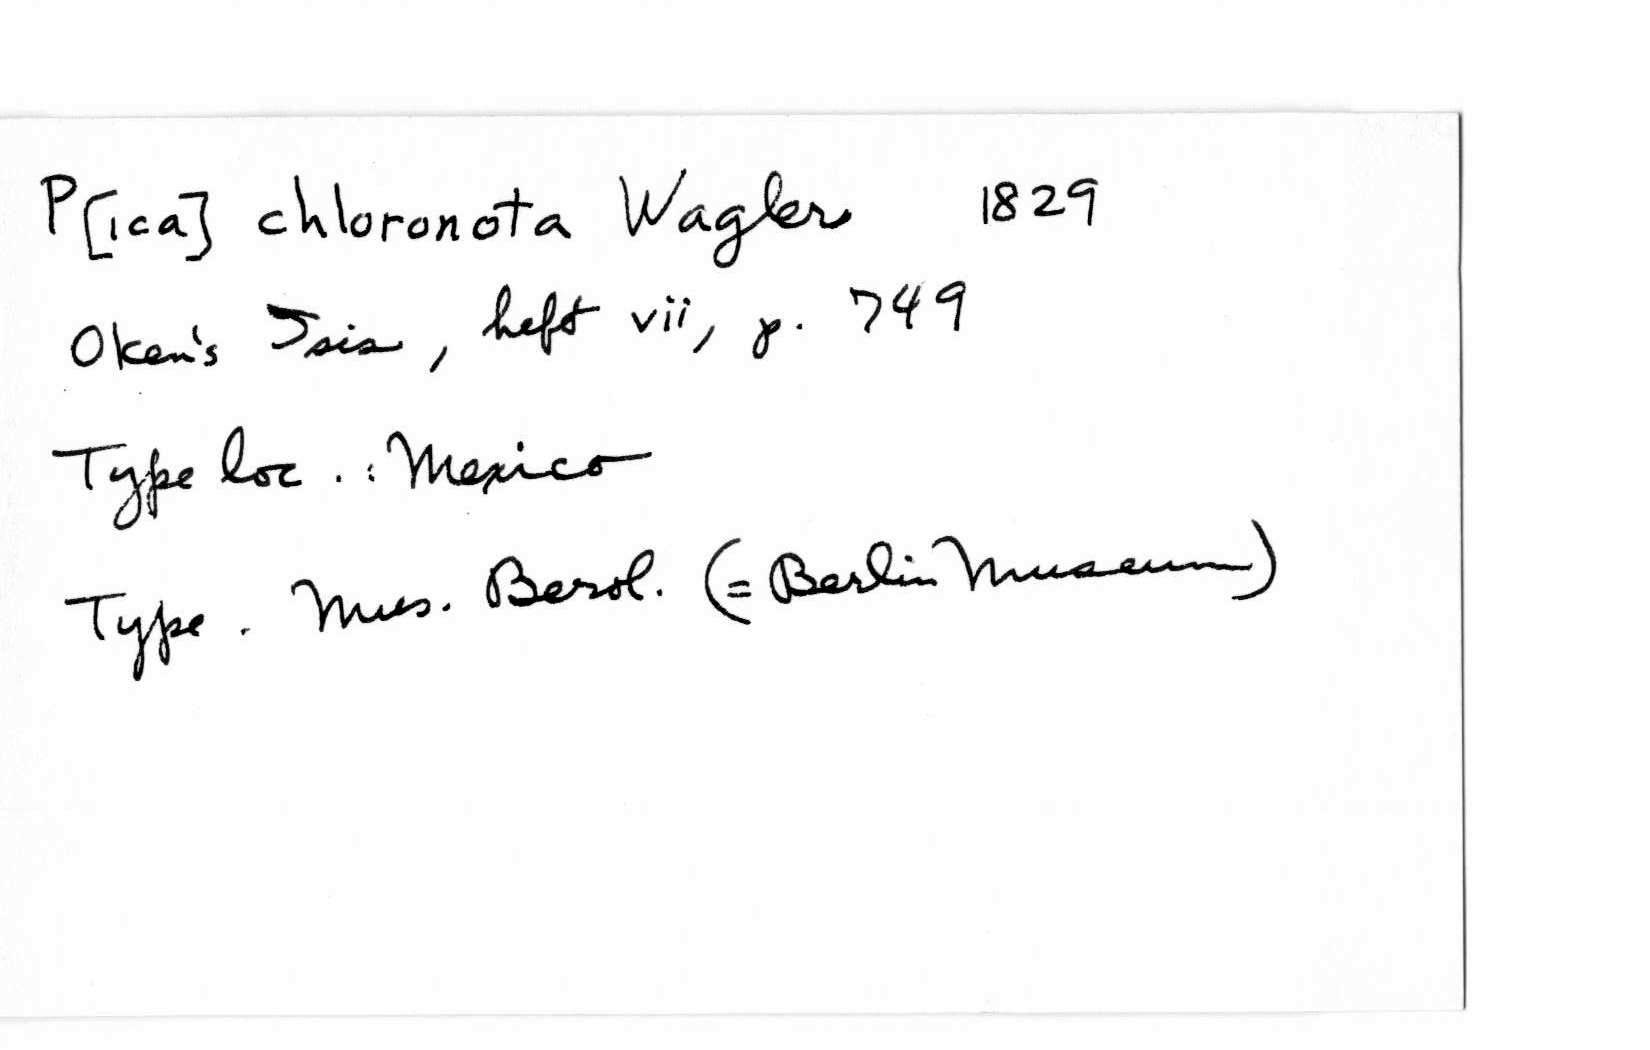 P[ica] chloronota Wagler 1829
Oken's Isis, heft vii, p. 749
Type loc.: Mexico
Type. Mus. Berol. (= Berlin Museum)